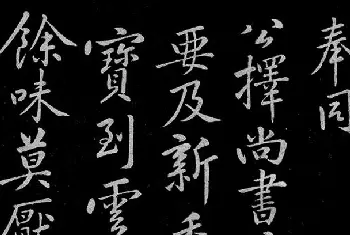 奉同
公擇尚書
要及新
寶到雲
餘味莫厭